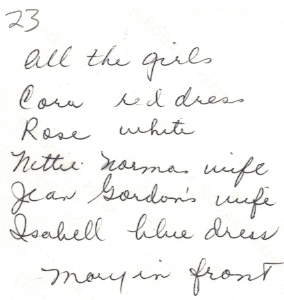 23
All the girls
Cora red dress
Rose white
Nettie Normas wife
Jean Gordon's wife
Isabell blue dress
Mary in front